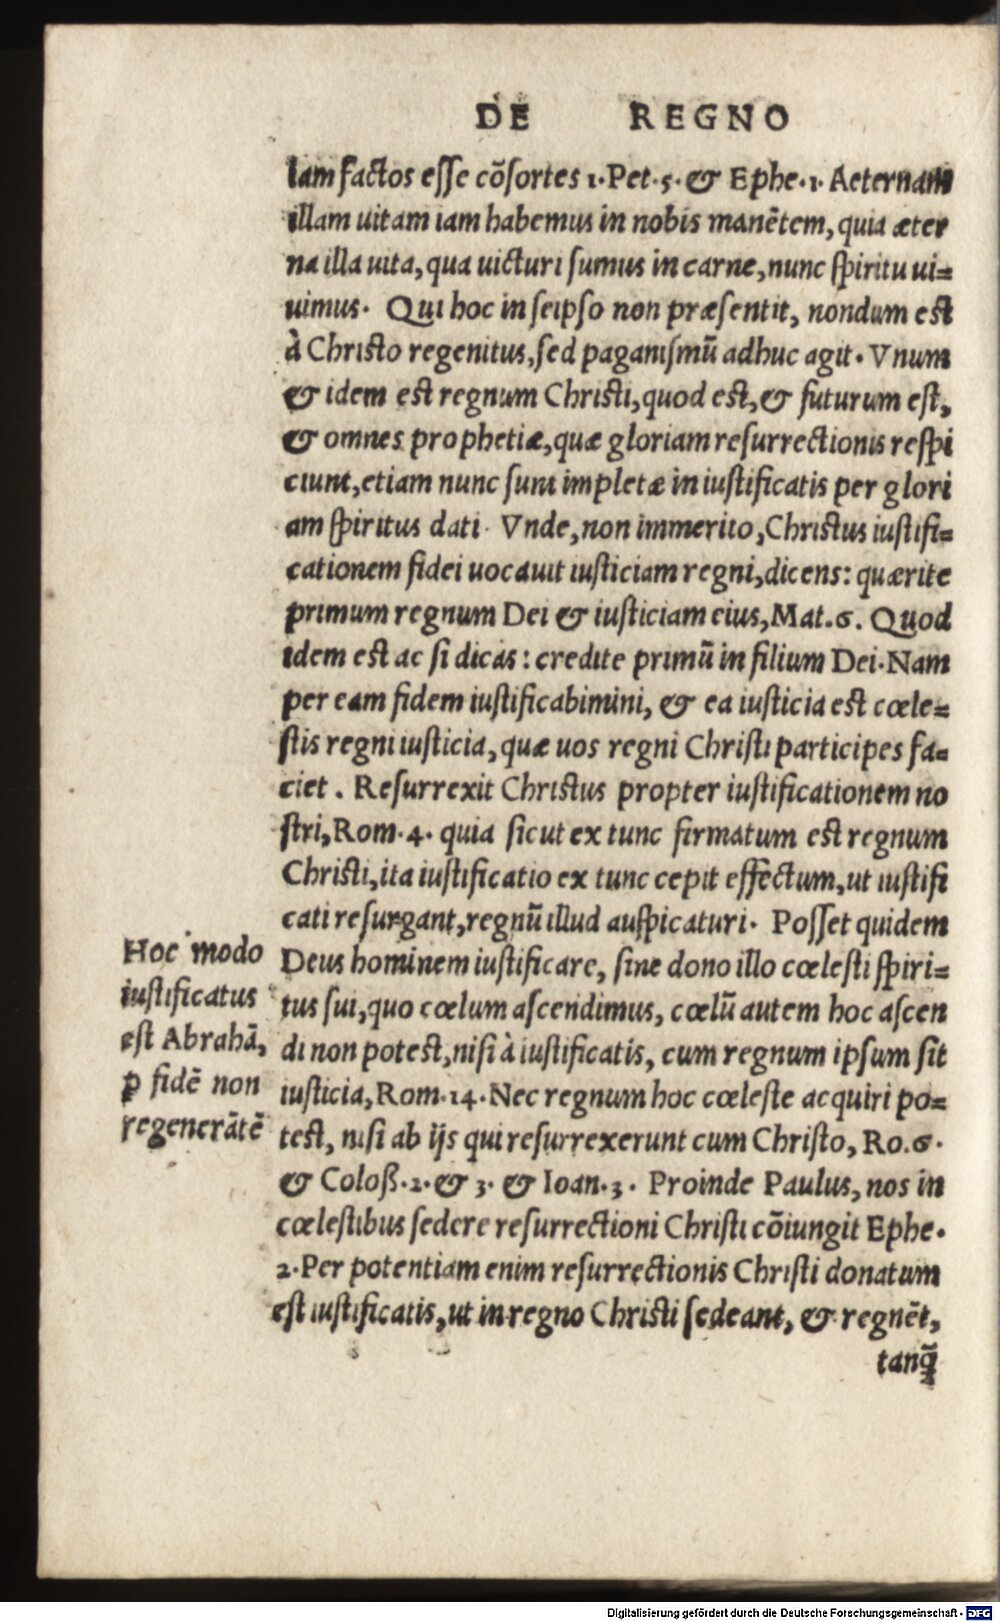 DE REGNO
iam factos esse cõsortes 1. Pet. 5. & Ephe. 1. Aeternam
illam uitam iam habemus in nobis manẽtem, quia æter
na illa uita, qua uicturi sumus in carne, nunc spiritu ui=
uimus. Qui hoc in seipso non præsentit, nondum est
à Christo regenitus, sed paganismũ adhuc agit. Vnum
& idem est regnum Christi, quod est, & futurum est,
& omnes prophetiæ, quæ gloriam resurrectionis respi
ciunt, etiam nunc sunt impletæ in iustificatis per glori
am spiritus dati. Vnde, non immerito, Christus iustifi=
cationem fidei uocauit iusticiam regni, dicens: quærite
primum regnum Dei & iusticiam eius, Mat. 6. Quod
idem est ac si dicas: credite primũ in filium Dei. Nam
per eam fidem iustificabimini, & ea iusticia est cœle=
stis regni iusticia, quæ uos regni Christi participes fa=
ciet. Resurrexit Christus propter iustificationem no
stri, Rom. 4. quia sicut ex tunc firmatum est regnum
Christi, ita iustificatio ex tunc cepit effectum, ut iustifi
cati resurgant, regnũ illud auspicaturi. Posset quidem
Deus hominem iustificare, sine dono illo cœlesti spiri=
tus sui, quo cœlum ascendimus, cœlũ autem hoc ascen
di non potest, nisi à iustificatis, cum regnum ipsum sit
iusticia, Rom. 14. Nec regnum hoc cœleste acquiri po=
test, nisi ab ijs qui resurrexerunt cum Christo, Ro. 6.
& Coloß. 2. & 3. & Ioan. 3. Proinde Paulus, nos in
cœlestibus sedere resurrectioni Christi cõiungit Ephe.
2. Per potentiam enim resurrectionis Christi donatum
est iustificatis, ut in regno Christi sedeant, & regnẽt,
tanq̃
Hoc modo
iustificatus
est Abrahã,
p fidẽ non
regenerãtẽ
Digitalisierung gefördert durch die Deutsche Forschungsgemeinschaft - DFG